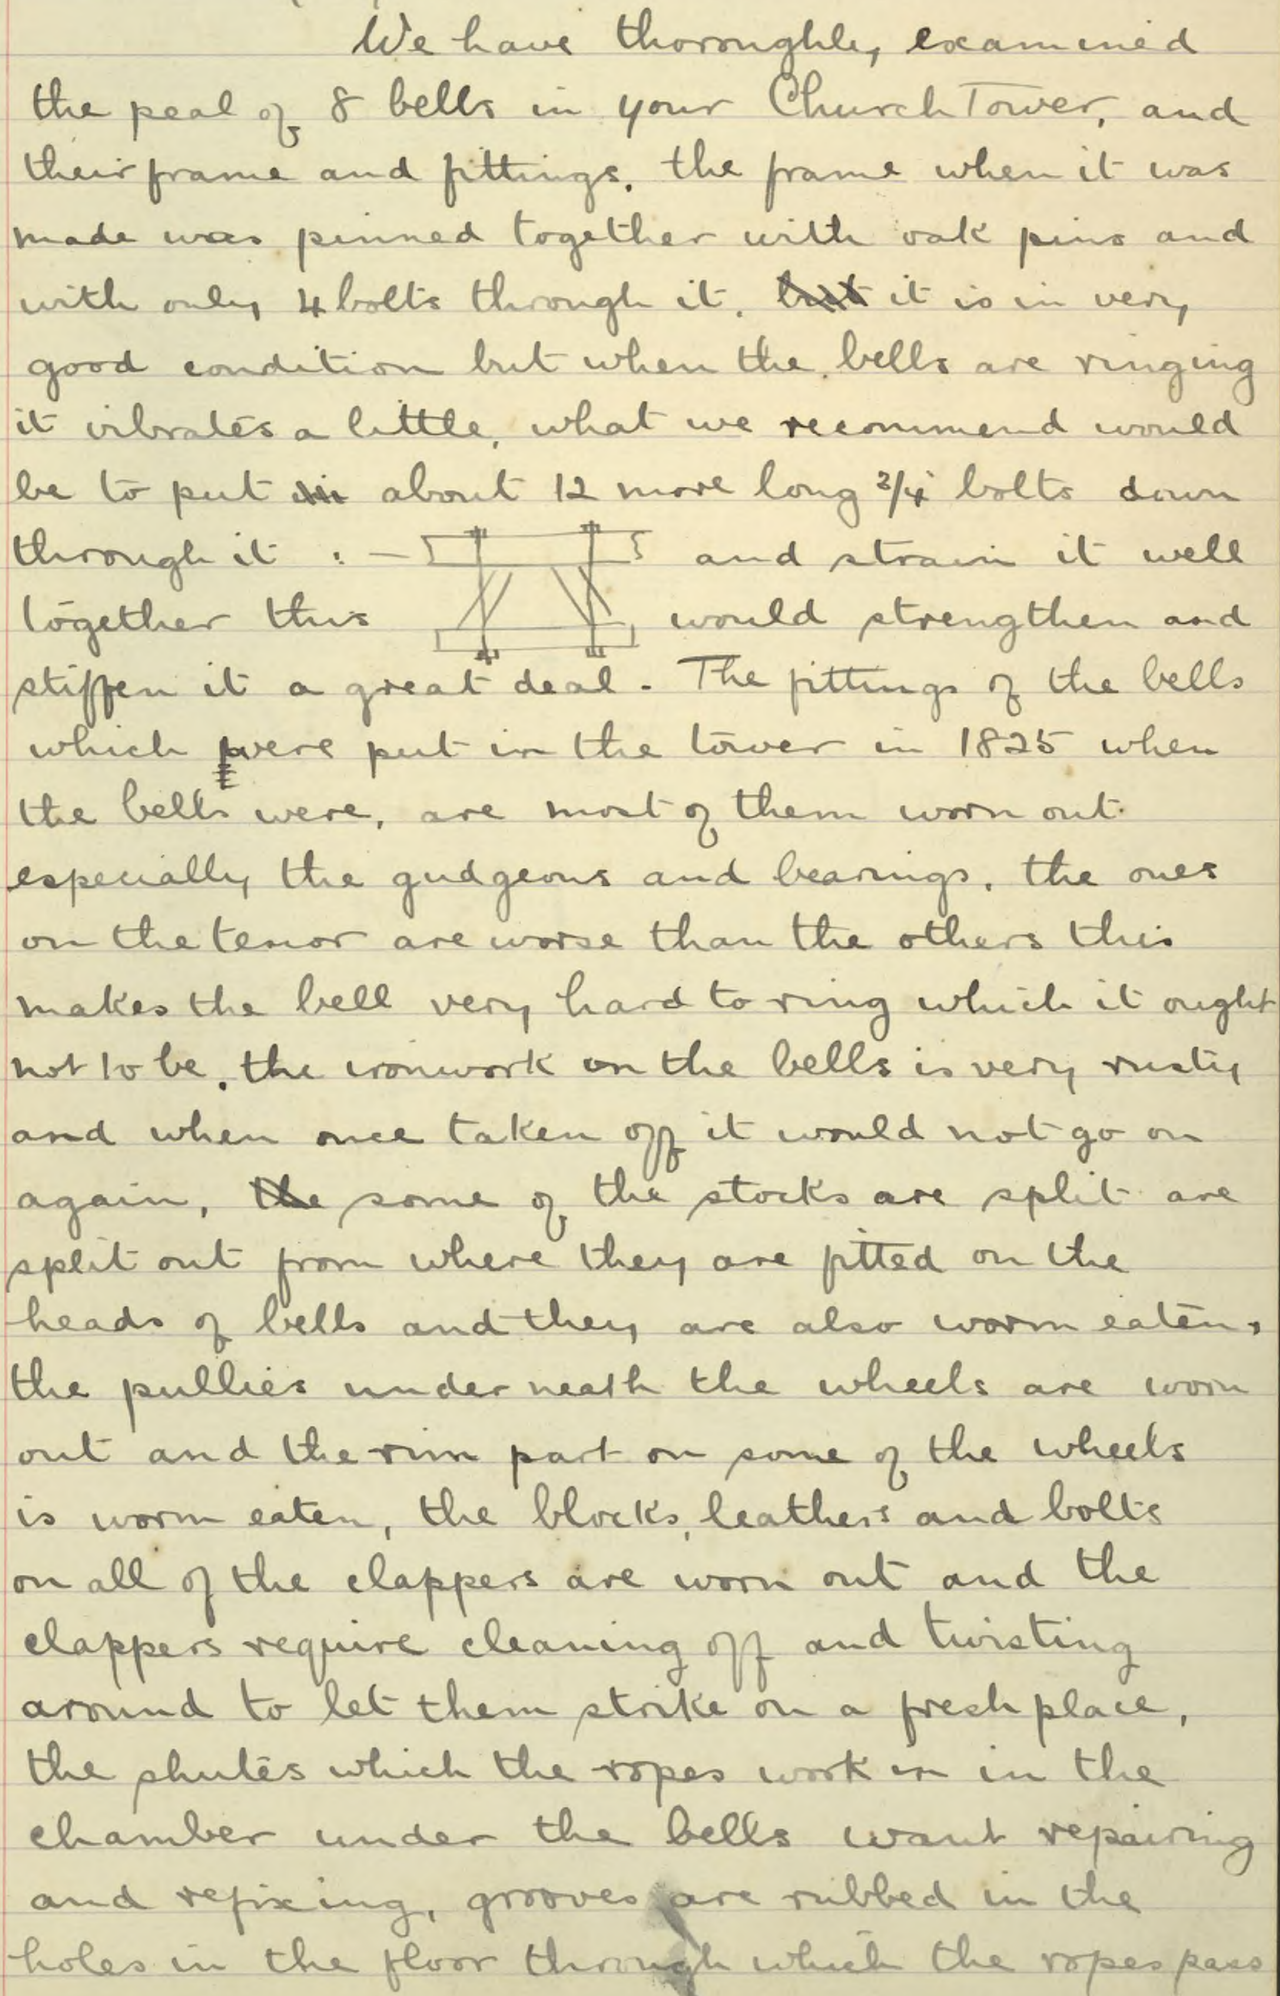 We have thoroughly examined
the peal of 8 bells in your Church Tower, and
their frame and fittings, the frame when it was
made was pinned together with oak pins and
with only 4 bolts through it, but it is in very
good condition but when the bells are ringing
it vibrates a little, what we recommend would
be to put in about 12 more long 3/4" bolts down
through it :- and strain it well
together this would strengthen and
stiffen it a great deal. The fittings of the bells
which were put in the tower in 1825 when
the bells were, are most of them worn out
especially the gudgeons and bearings, the ones
on the tenor are worse than the others this
makes the bell very hard to ring which it ought
not to be, the ironwork on the bells is very rusty
and when once taken off it would not go on
again, the some of the stocks are split are
split out from where they are fitted on the
heads of bells and they are also worm eaten,
the pullies underneath the wheels are worn
out and the rim part on some of the wheels
is worm eaten, the blocks, leathers and bolts
on all of the clappers are worn out and the
clappers require cleaning off and twisting
around to let them strike on a fresh place,
the shutes which the ropes work in in the
chamber under the bells want repairing
and refixing, grooves are rubbed in the
holes in the floor through which the ropes pass